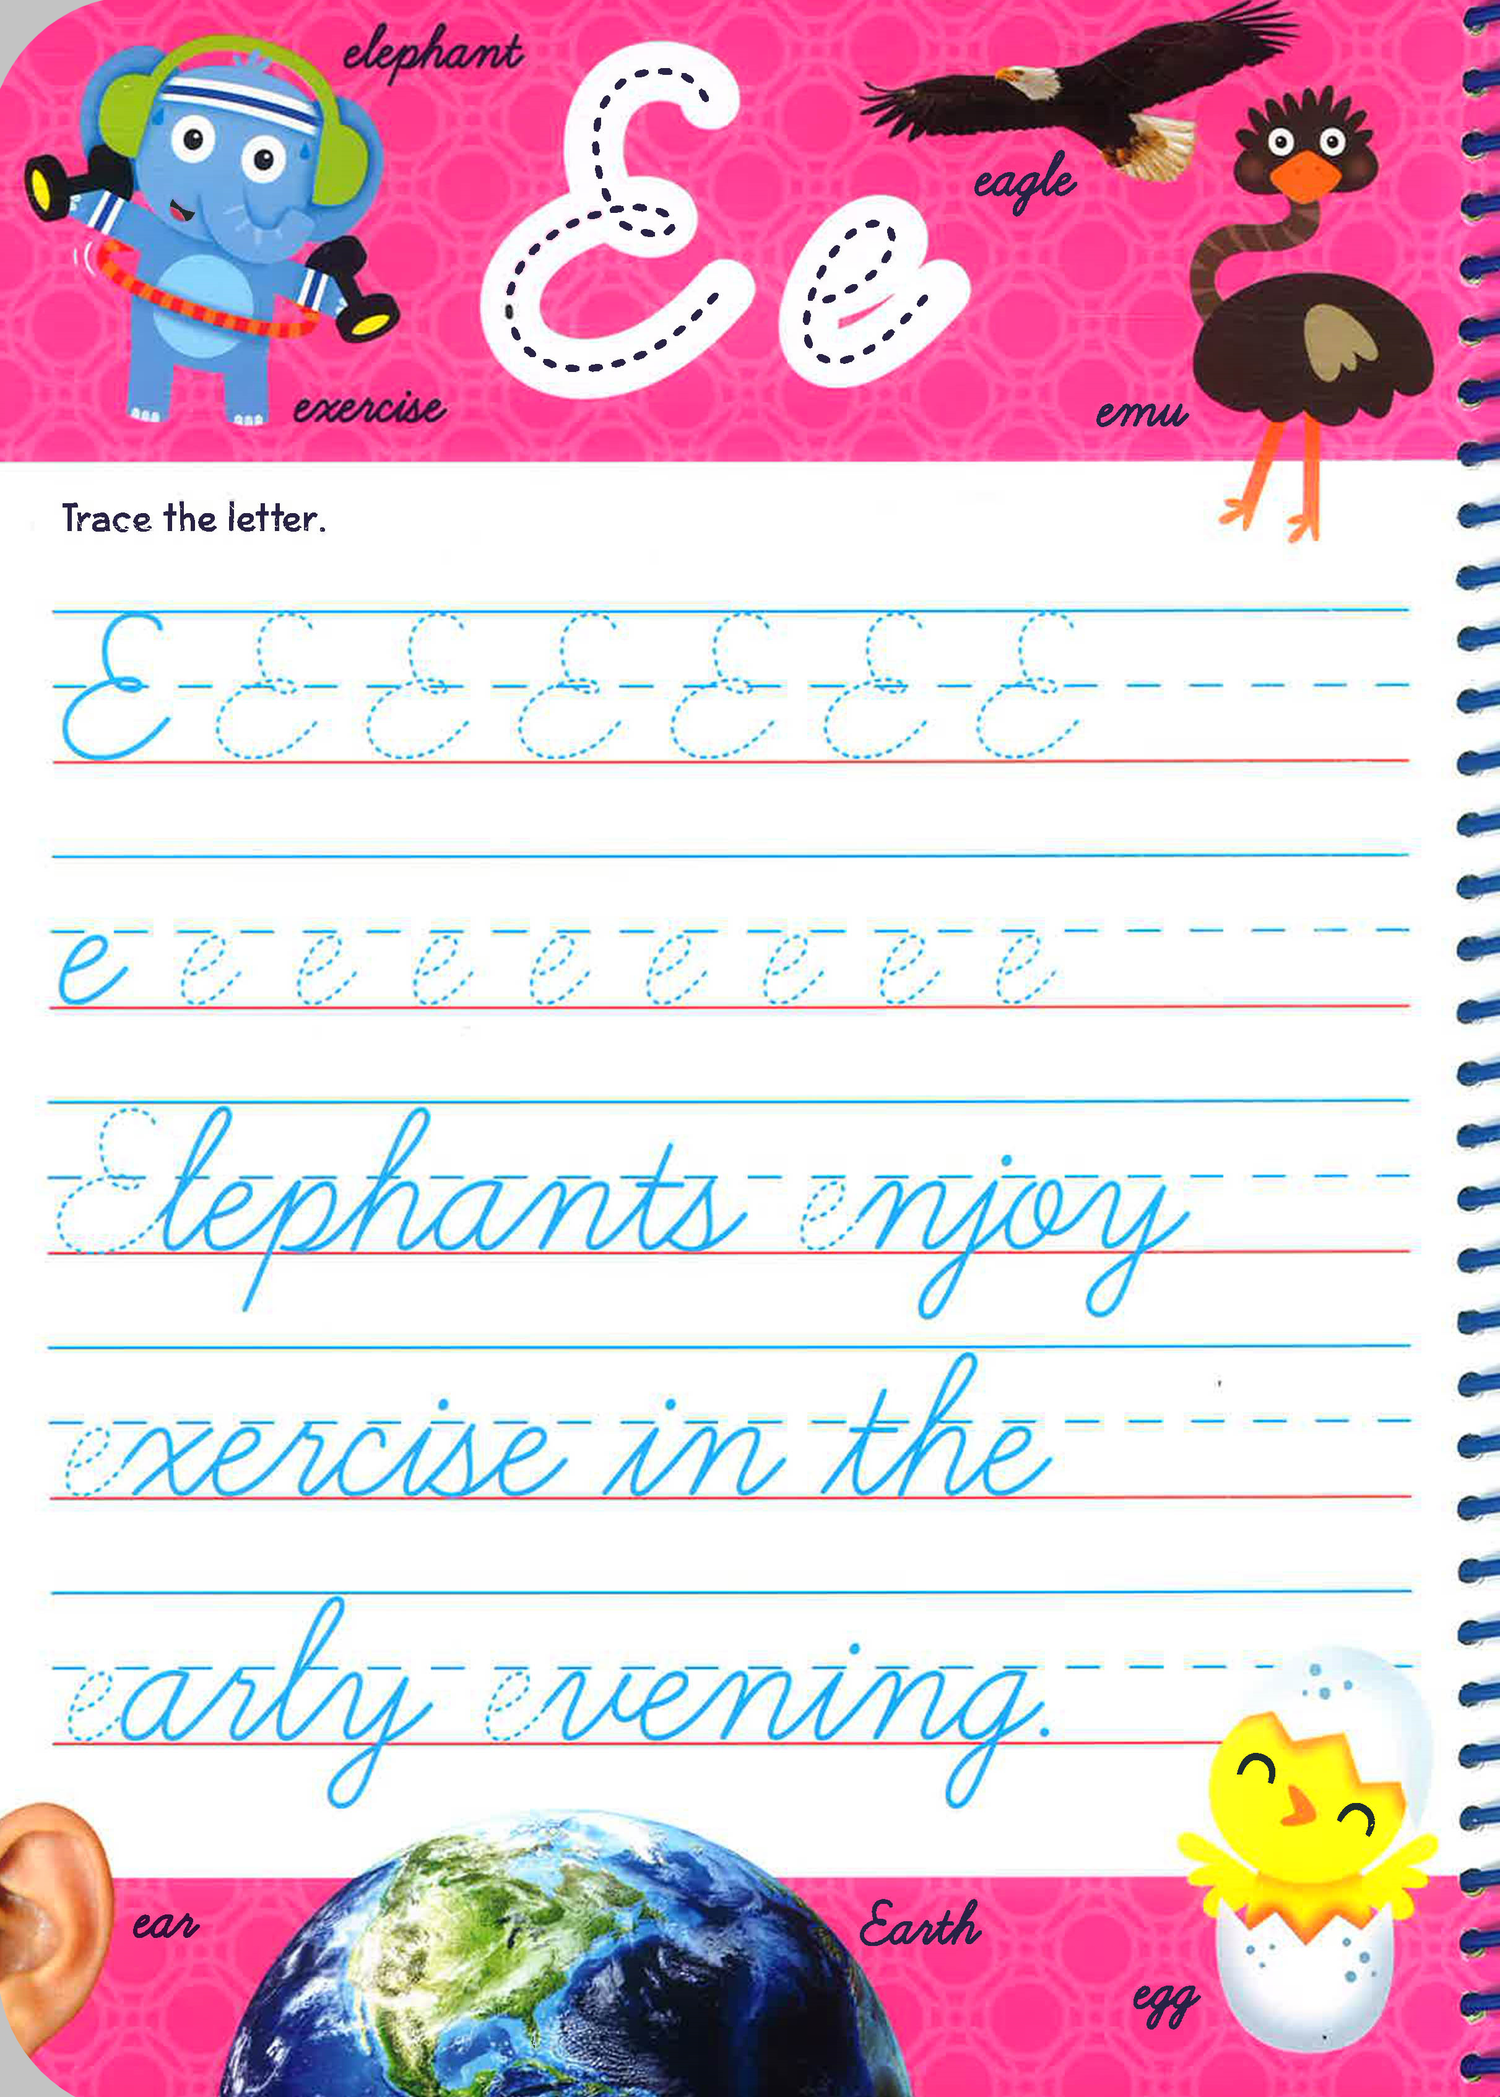 elephant
Ee
eagle
exercise
emu
Trace the letter.
E E E E E E E
e e e e e e e e e
Elephants enjoy
exercise in the
early evening.
ear
Earth
egg